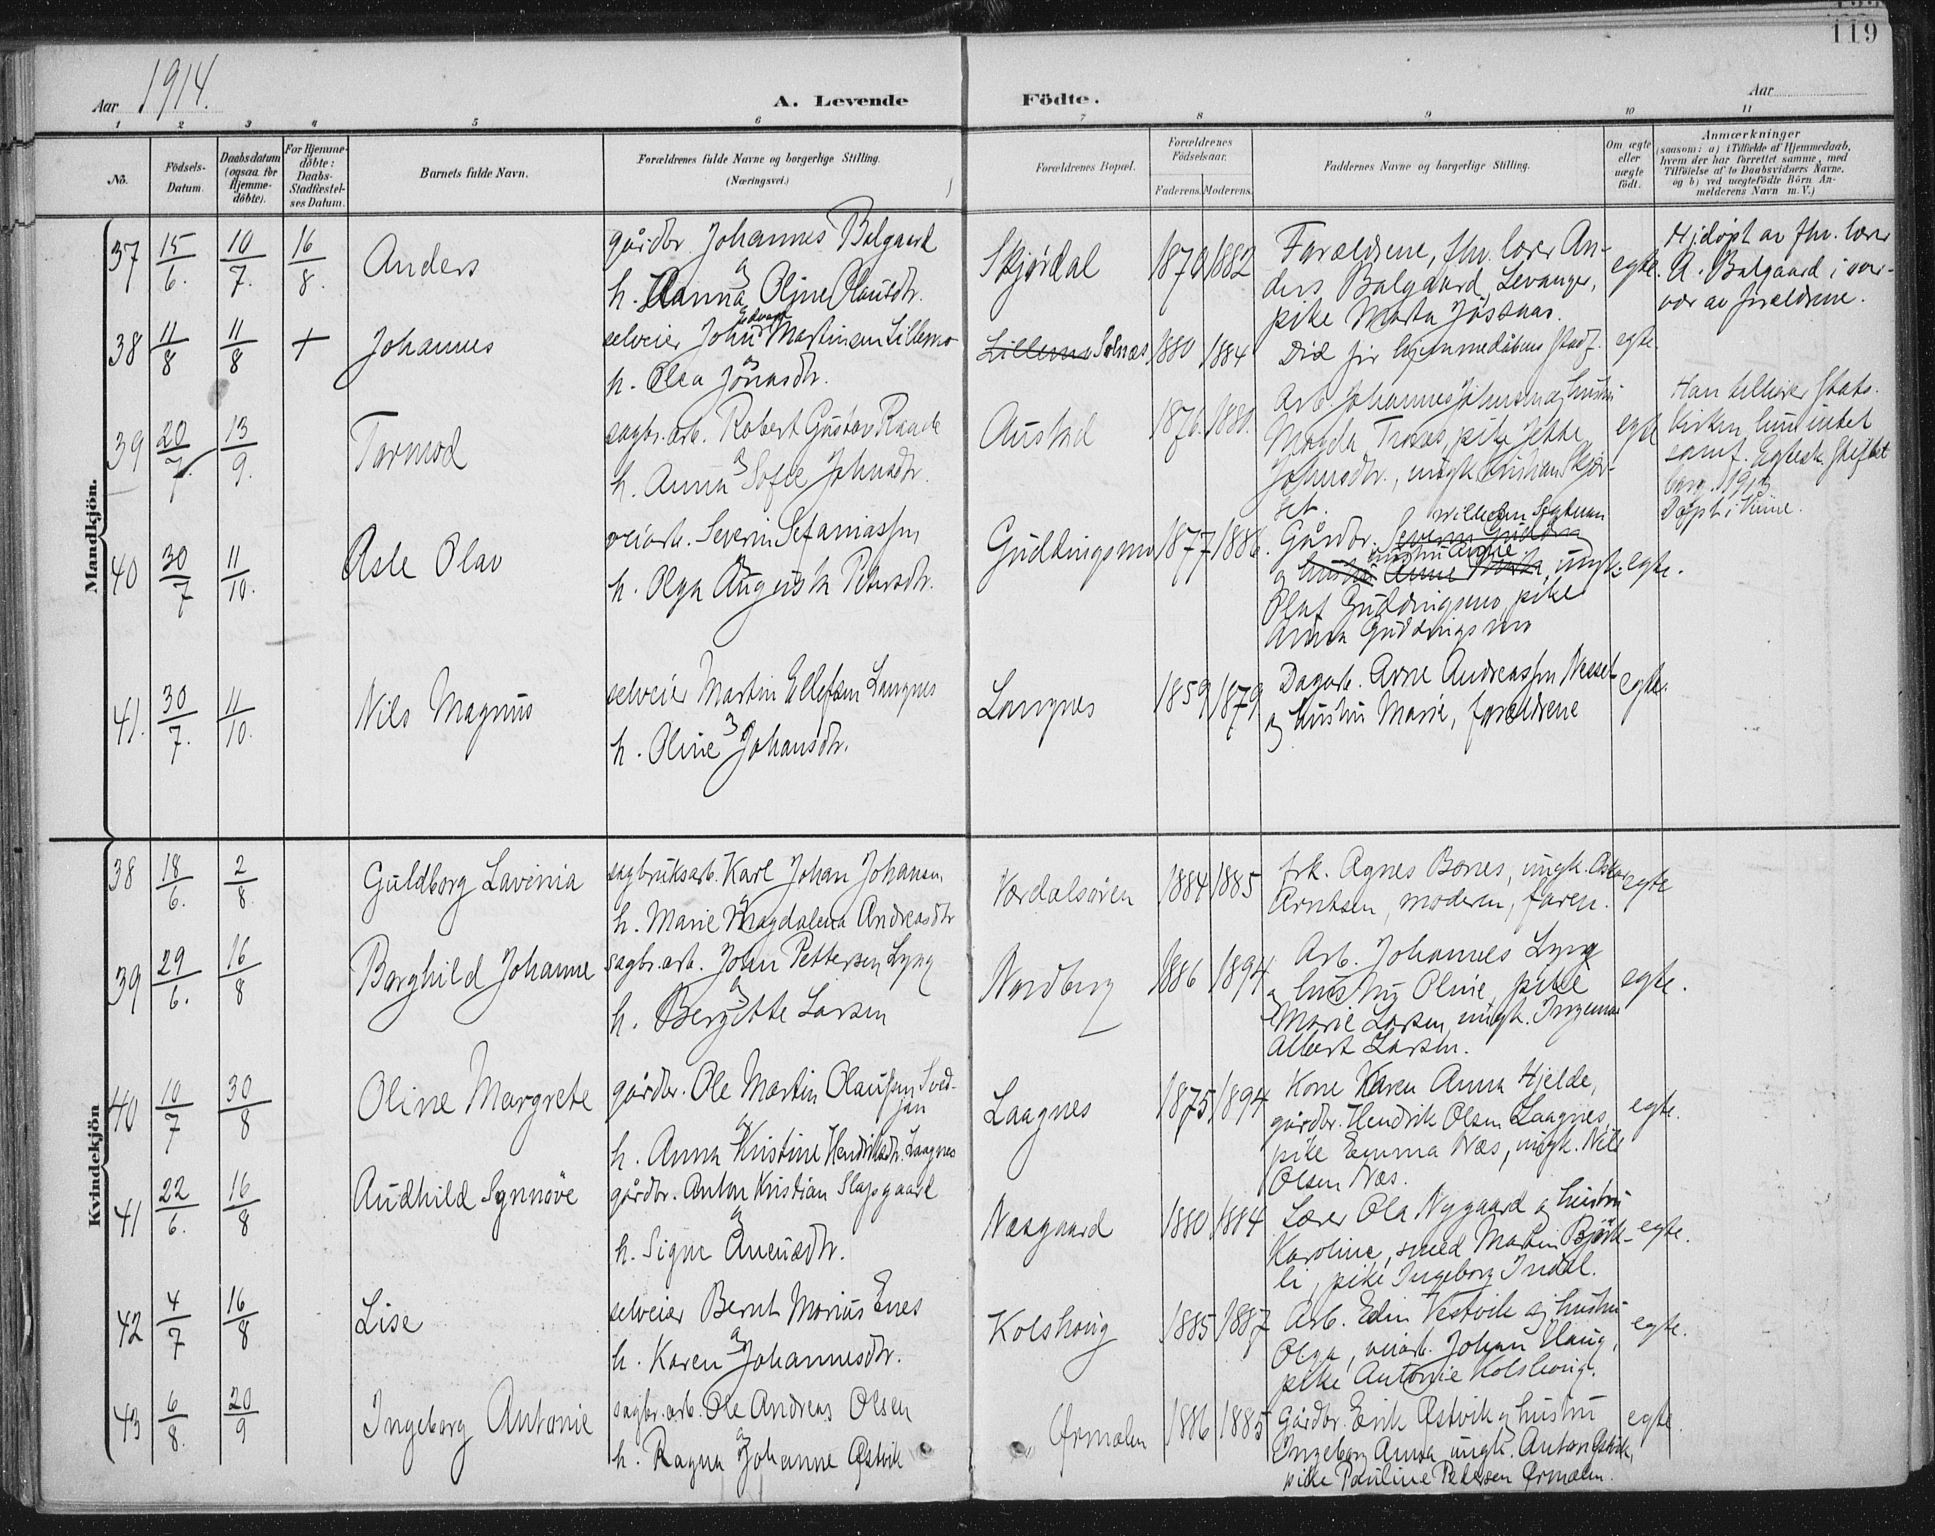 119
Aar 1914.
A. Levende Födte.
Aar
1 2 3 4 5 6 7 8 9 10 11
No.
Födsels-Datum.
Daabsdatum (ogsaa for Hjemme-döbte).
For Hjemme-döbte: Daabs-Stadfæstel-ses Datum.
Barnets fulde Navn.
Forældrenes fulde Navne og borgerlige Stilling.
(Næringsvei.)
Forældrenes Bopæl.
Forældrenes Födselsaar.
Faderens. Moderens.
Faddernes Navne og borgerlige Stilling.
Om ægte eller uægte födt.
Anmærkninger
(saasom: a) i Tilfælde af Hjemmedaab,
hvem der har forrettet samme, med
Tilföielse af to Daabsvidners Navne,
og b) ved uægtefödte Börn An-
melderens Navn m. V.)
Mandkjön.
37 15/6. 10/7. 16/8. Anders
gårdbr. Johannes Balgaard
h. Hanna Oline Olausdtr.
Skjördal 1870 1882
Forældrene, fhv. lærer An-
ders Balgaard, Levanger,
pike Marta Jösaas.
egte.
Hj.döpt av fhv. lærer
A. Balgaard i over-
vær av forældrene.
38 11/8 11/8 + Johannes
selveier Johan Edvard Martinsen Lillemo
h. Olea Jonasdtr.
Lillemo Solnæs 1880 1884
Död för hjemmedåbens stadf. egte.
39 20/7. 13/9. Tormod
sagbr.arb. Robert Gustav Raade
h. Anna Sofie Johnsdtr.
Auskad 1876. 1880.
Arb. Johannes Johnsen og hustru
Magda Trones, pike Jekke
Johnsdtr., ungk. Kristian Skjör-
set.
egte
Han tilhører Stats-
kirken, hun intet
samf.
1913
Döpt i
40 30/7 11/10. Asle Olav
veiarb. Severin Sefaniassen
h. Olga Augusta Petersdtr.
Guddingsmo 1877 1886.
Gårdbr.
Wilhelm
hustru Anne
og hustru Anne, ungk.
Olaf Guddingsmo, pike
Anna Guddingsmo
egte.
41. 30/7. 11/10. Nils Magnus
selveier Martin Ellefsen Langnes
h. Oline Johansdtr.
Langnes 1859 1879
Dagarb. Arne Andreassen Nesset
og hustru Marie, forældrene
egte.
Kvindekjön
38 18/6. 2/8. Guldborg Lavinia
sagbruksarb. Karl Johan Johansen
h. Marie Magdalena Andreasdtr
Verdalsören 1884 1885
frk. Agnes Bones, ungk. Oskar
Arntsen, moderen, faren.
egte
39 29/6. 16/8 Borghild Johanne
sagbr.arb. John Pettersen Lyng
h. Bergitte Larsen
Nordberg 1886 1894
Arb. Johannes Lyng
og hustru Oline, pike
Marie Larsen, ungk. Ingemar
Albert Larsen.
egte.
40 10/7 30/8 Oline Margrete
gårdbr. Ole Martin Olaussen Sved-
jan
h. Anna Kristine Hendriksdtr. Laagnes
Laagnes 1875 1894
Kone Karen Anna Hjelde,
gårdbr. Hendrik Olsen Laagnes,
pike Emma Næs, ungk. Nils
Olsen Næs.
egte.
41 22/6. 16/8 Audhild Synnöve
gårdbr. Anton Kristian Slapgaard
h. Signe Aneusdtr.
Næsgaard 1880 1884
Lærer Ola Nygaard og hustru
Karoline, smed Martin Björk-
li, pike Ingeborg Indal.
egte.
42 4/7 16/8 Lise
selveier Bernt Marius Enes
h. Karen Johannesdtr.
Kolshaug 1885 1887
Arb. Edin Vestvik og hustru
Olga, veiarb. Johan Haug,
pike Antonie Kolshaug.
egte.
43 6/8. 20/9 Ingeborg Antonie
sagbr.arb. Ole Andreas Olsen
h. Ragna Johanne Østvik
Ørmelen 1886 1885
Gårdbr. Erik Østvik og hustru
Ingeborg Anna, ungk. Anton Østvik,
pike Pauline Petersen Ørmelen.
egte.